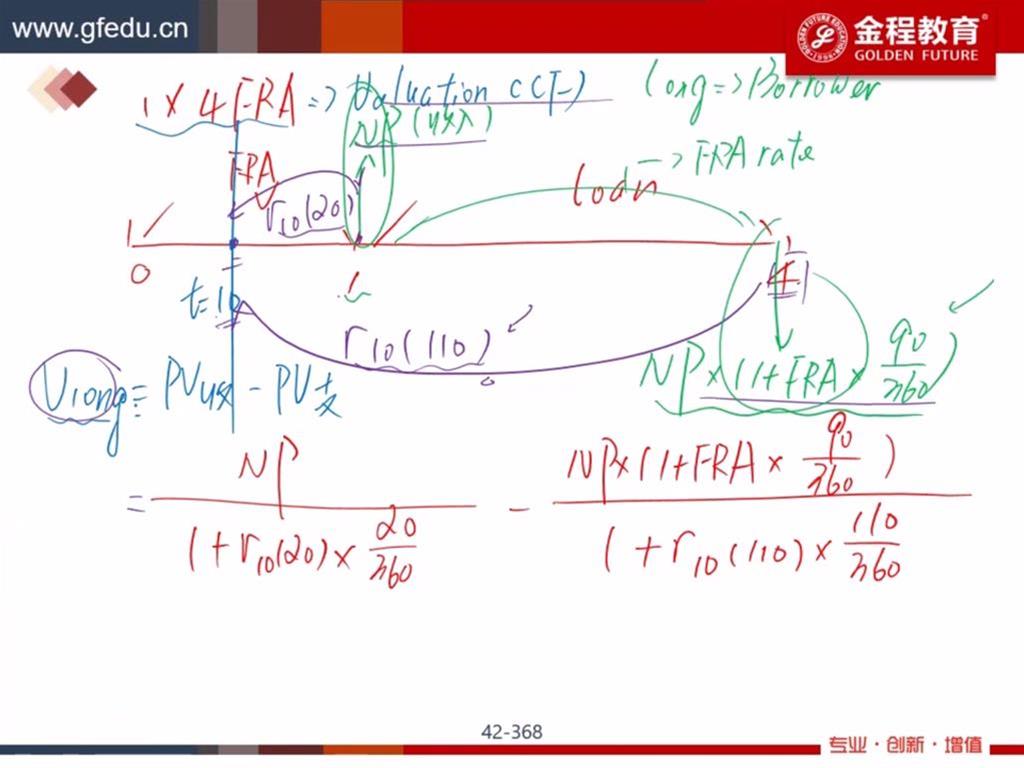 www.gfedu.cn
金程教育®
GOLDEN FUTURE
1 × 4 FRA => Valuation (CF)
Long => Borrower
NP (收入)
-> FRA rate
FRA
r10(20)
loan
0
1
4
t=10
r10(110)
NP×(1+FRA× 90/360)
Vlong = PV收 - PV支
= NP / (1+r10(20)× 20/360) - NP×(1+FRA× 90/360) / (1+r10(110)× 110/360)
42-368
专业·创新·增值